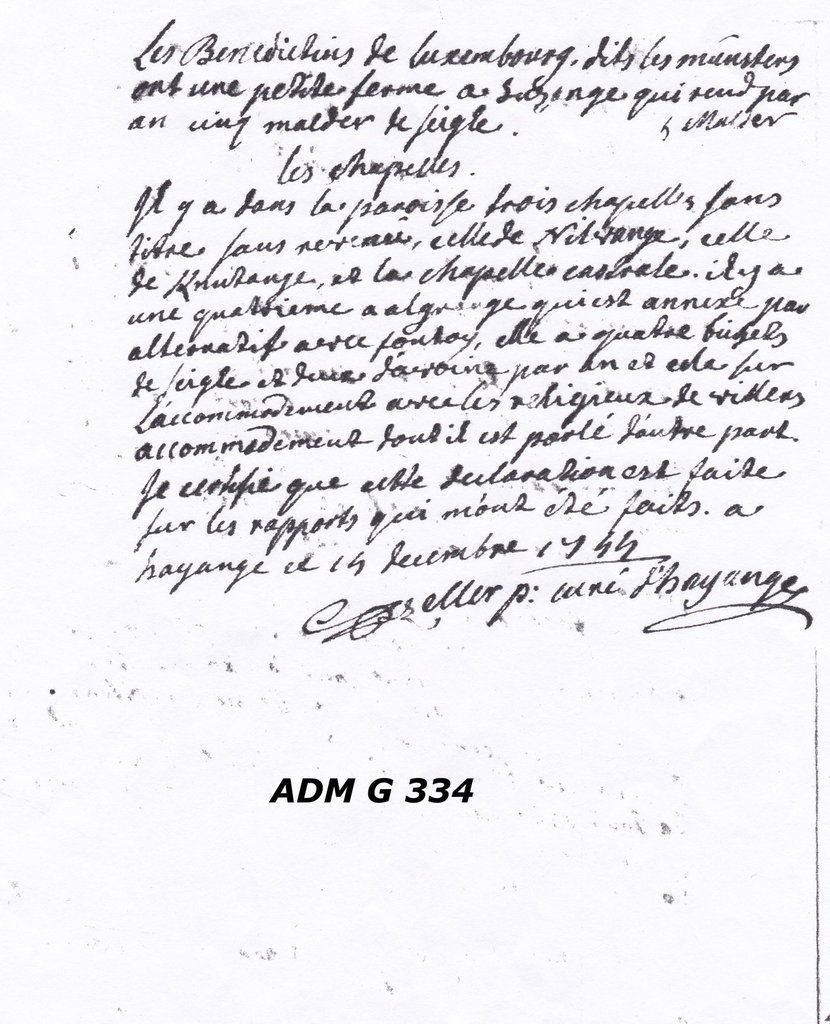 Les Benedictins de luxembourg. dits les münsters
ont une petite ferme a qui rend par
an cinq malder de seigle. 5 Malder
les chapelles.
Il y a dans la paroisse trois chapelles sans
titre sans revenu, celle de Nilvange, celle
de Knutange, et la chapelle castrale. il y a
une quatrieme a algrange qui est annexe par
alternatif avec fontoy, elle a quatre bichets
de seigle et deux d'avoine par an et cela sur
L'accommodement avec les religieux de villers
accommodement dont il est parlé d'autre part.
Je certifie que cette declaration est faite
sur les rapports qui m'ont été faits. a
hayange ce 14 decembre 1744
zeller p: curé d'hayange
ADM G 334